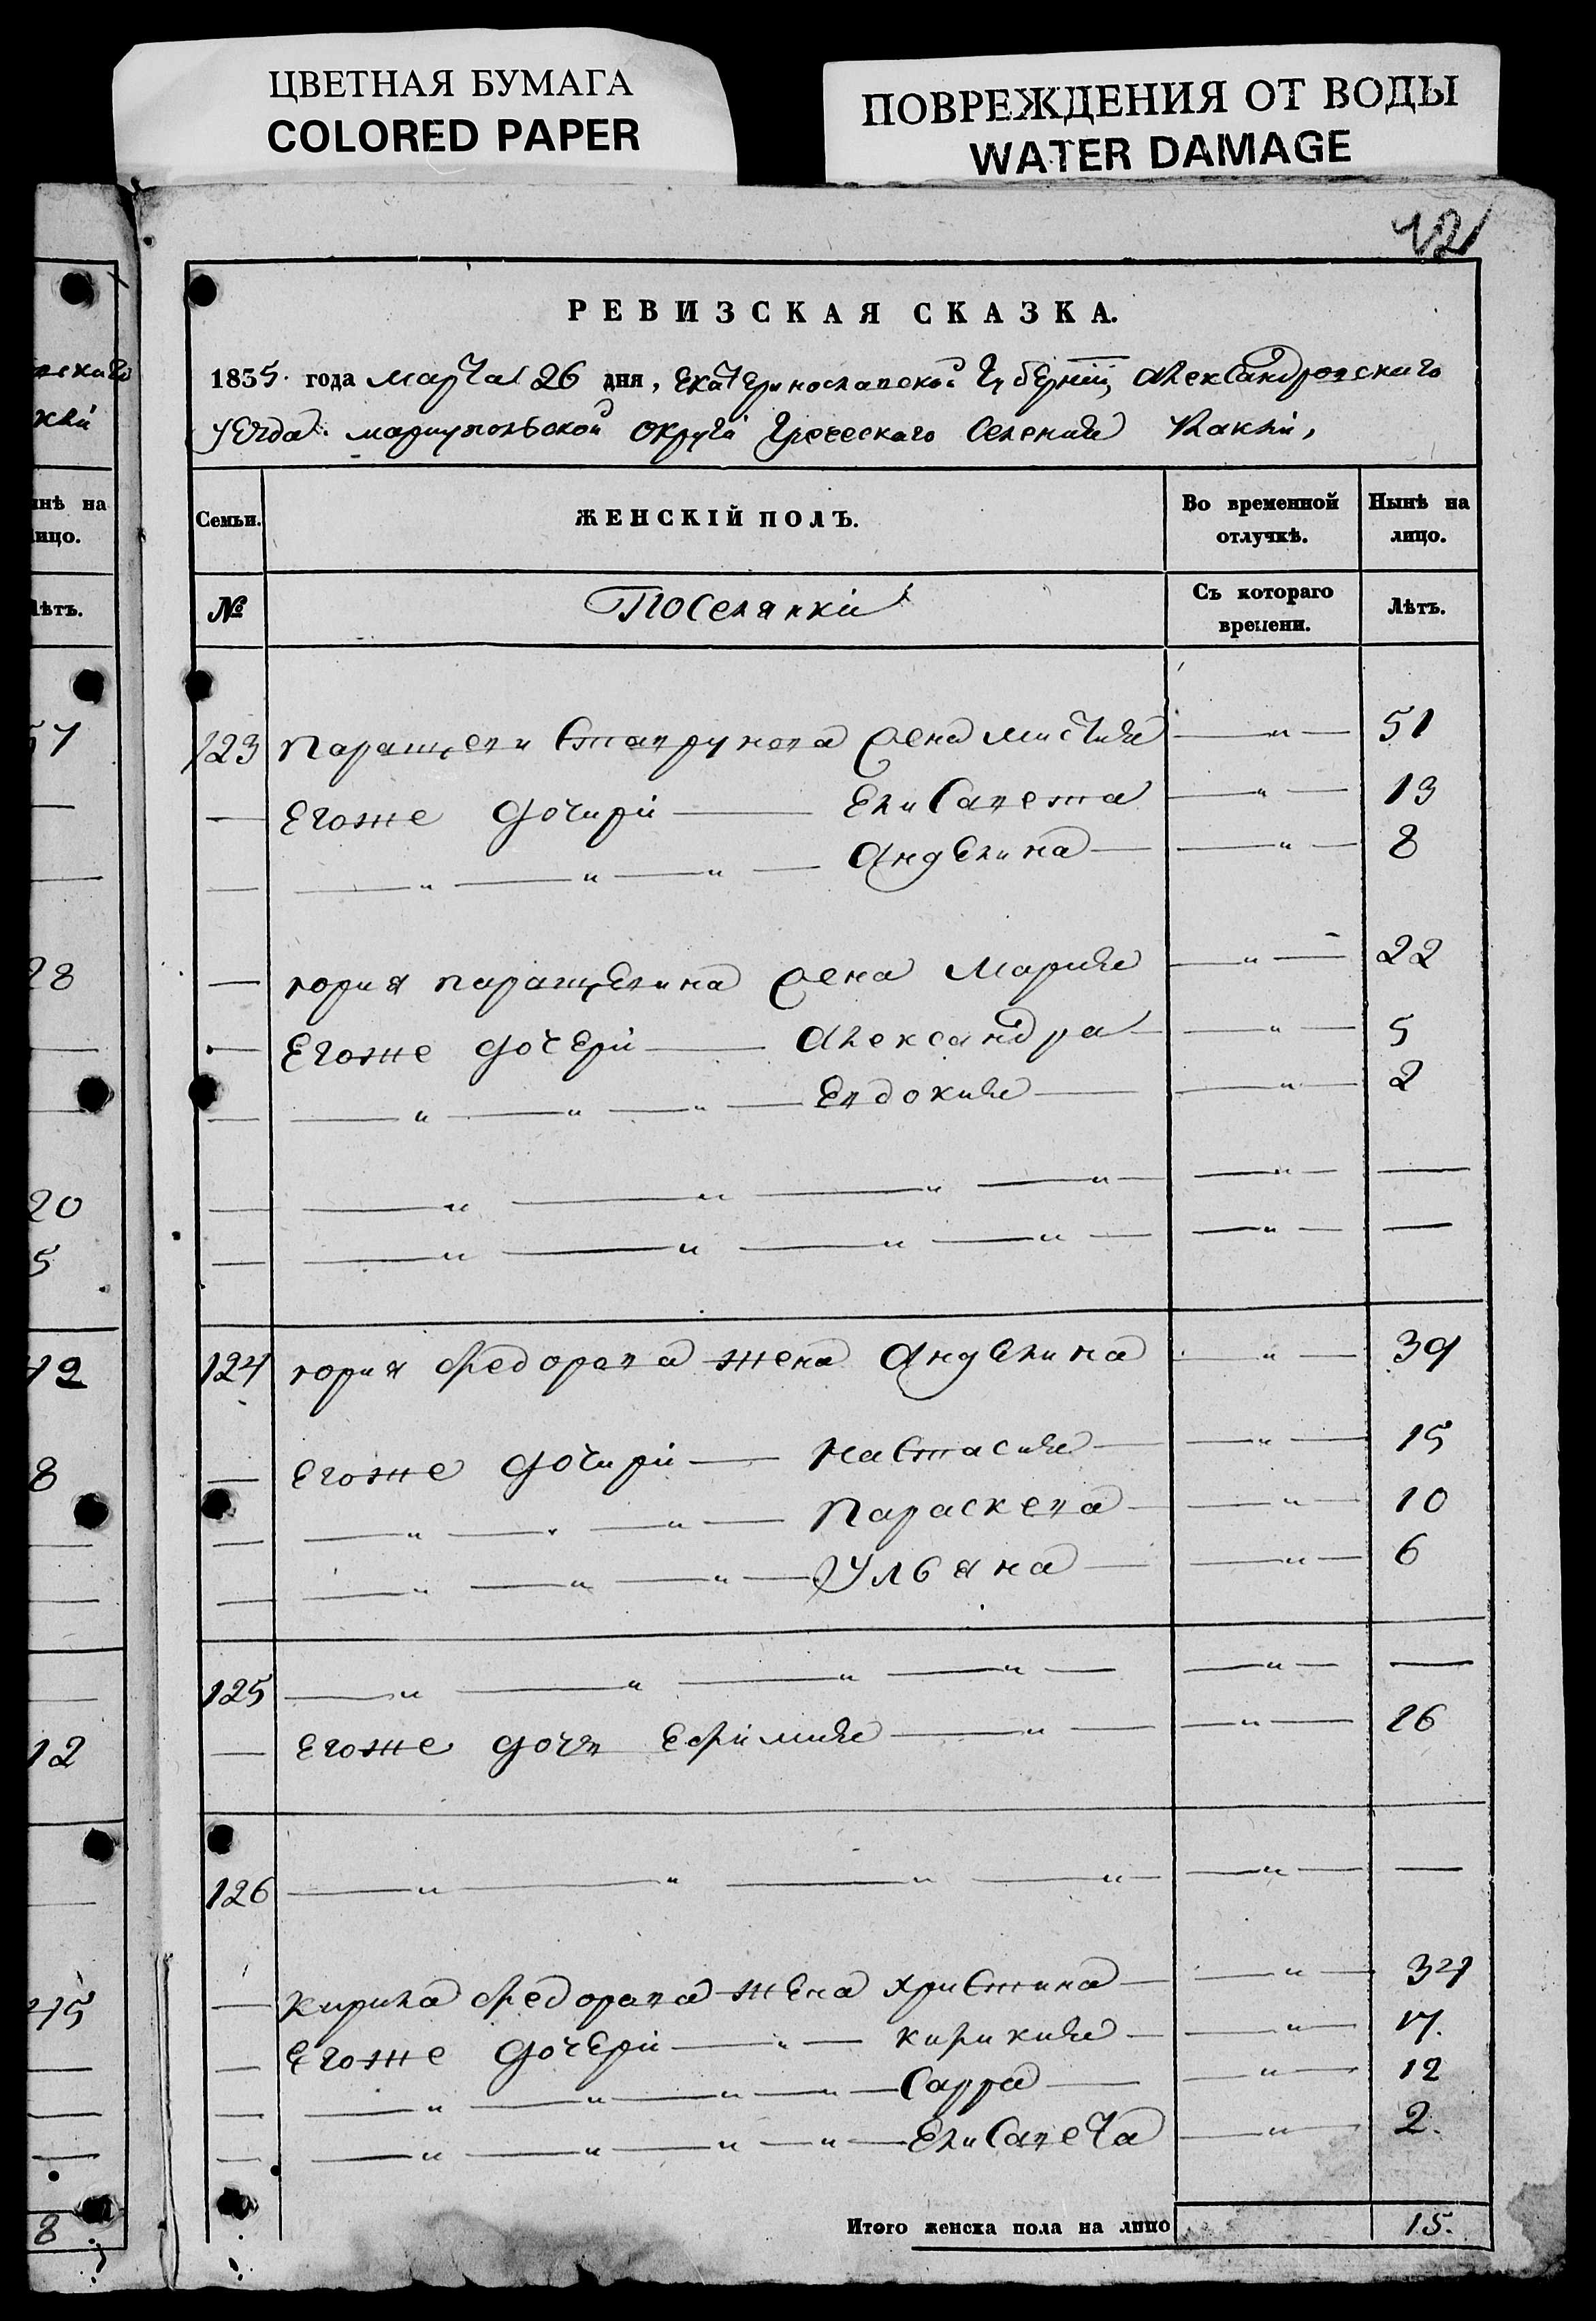 ЦВЕТНАЯ БУМАГА
COLORED PAPER
ПОВРЕЖДЕНИЯ ОТ ВОДЫ
WATER DAMAGE
121
РЕВИЗСКАЯ СКАЗКА.
1835 года марта 26 дня, Екатеринославской Губерніи Александровского
уезда мариупольской округи Греческаго Селения
Семьи. ЖЕНСКІЙ ПОЛЪ. Во временной отлучкѣ. Нынѣ на лицо.
№ Поселянки Съ котораго времени. Лѣтъ.
123 Паращеви жена — " — 51
— Егоже дочири — Елисавета — " — 13
— — " — " — " — Ангелина — — " — 8
— юрия паращевина жена Мария — " — 22
— Егоже дочери — Александра — — " — 5
— — " — " — " — Евдокия — — " — 2
— — " — " — " — " — — " — —
— — " — " — " — " — — " — —
124 юрия Федорова жена Ангелина — " — 39
— Егоже дочири — Настасия — — " — 15
— — " — " — " — Параскева — — " — 10
— — " — " — " — Ульяна — — " — 6
125 — " — " — " — " — — " — —
— Егоже дочь Ефимия — " — — " — 26
126 — " — " — " — " — — " — —
— кирила Федорава жена христина — — " — 34
— Егоже дочери — " — кирикия — — " — 17.
— — " — " — " — " — Сарра — — " — 12
— — " — " — " — " — Елисавета — " — 2.
Итого женска пола на лицо 15.